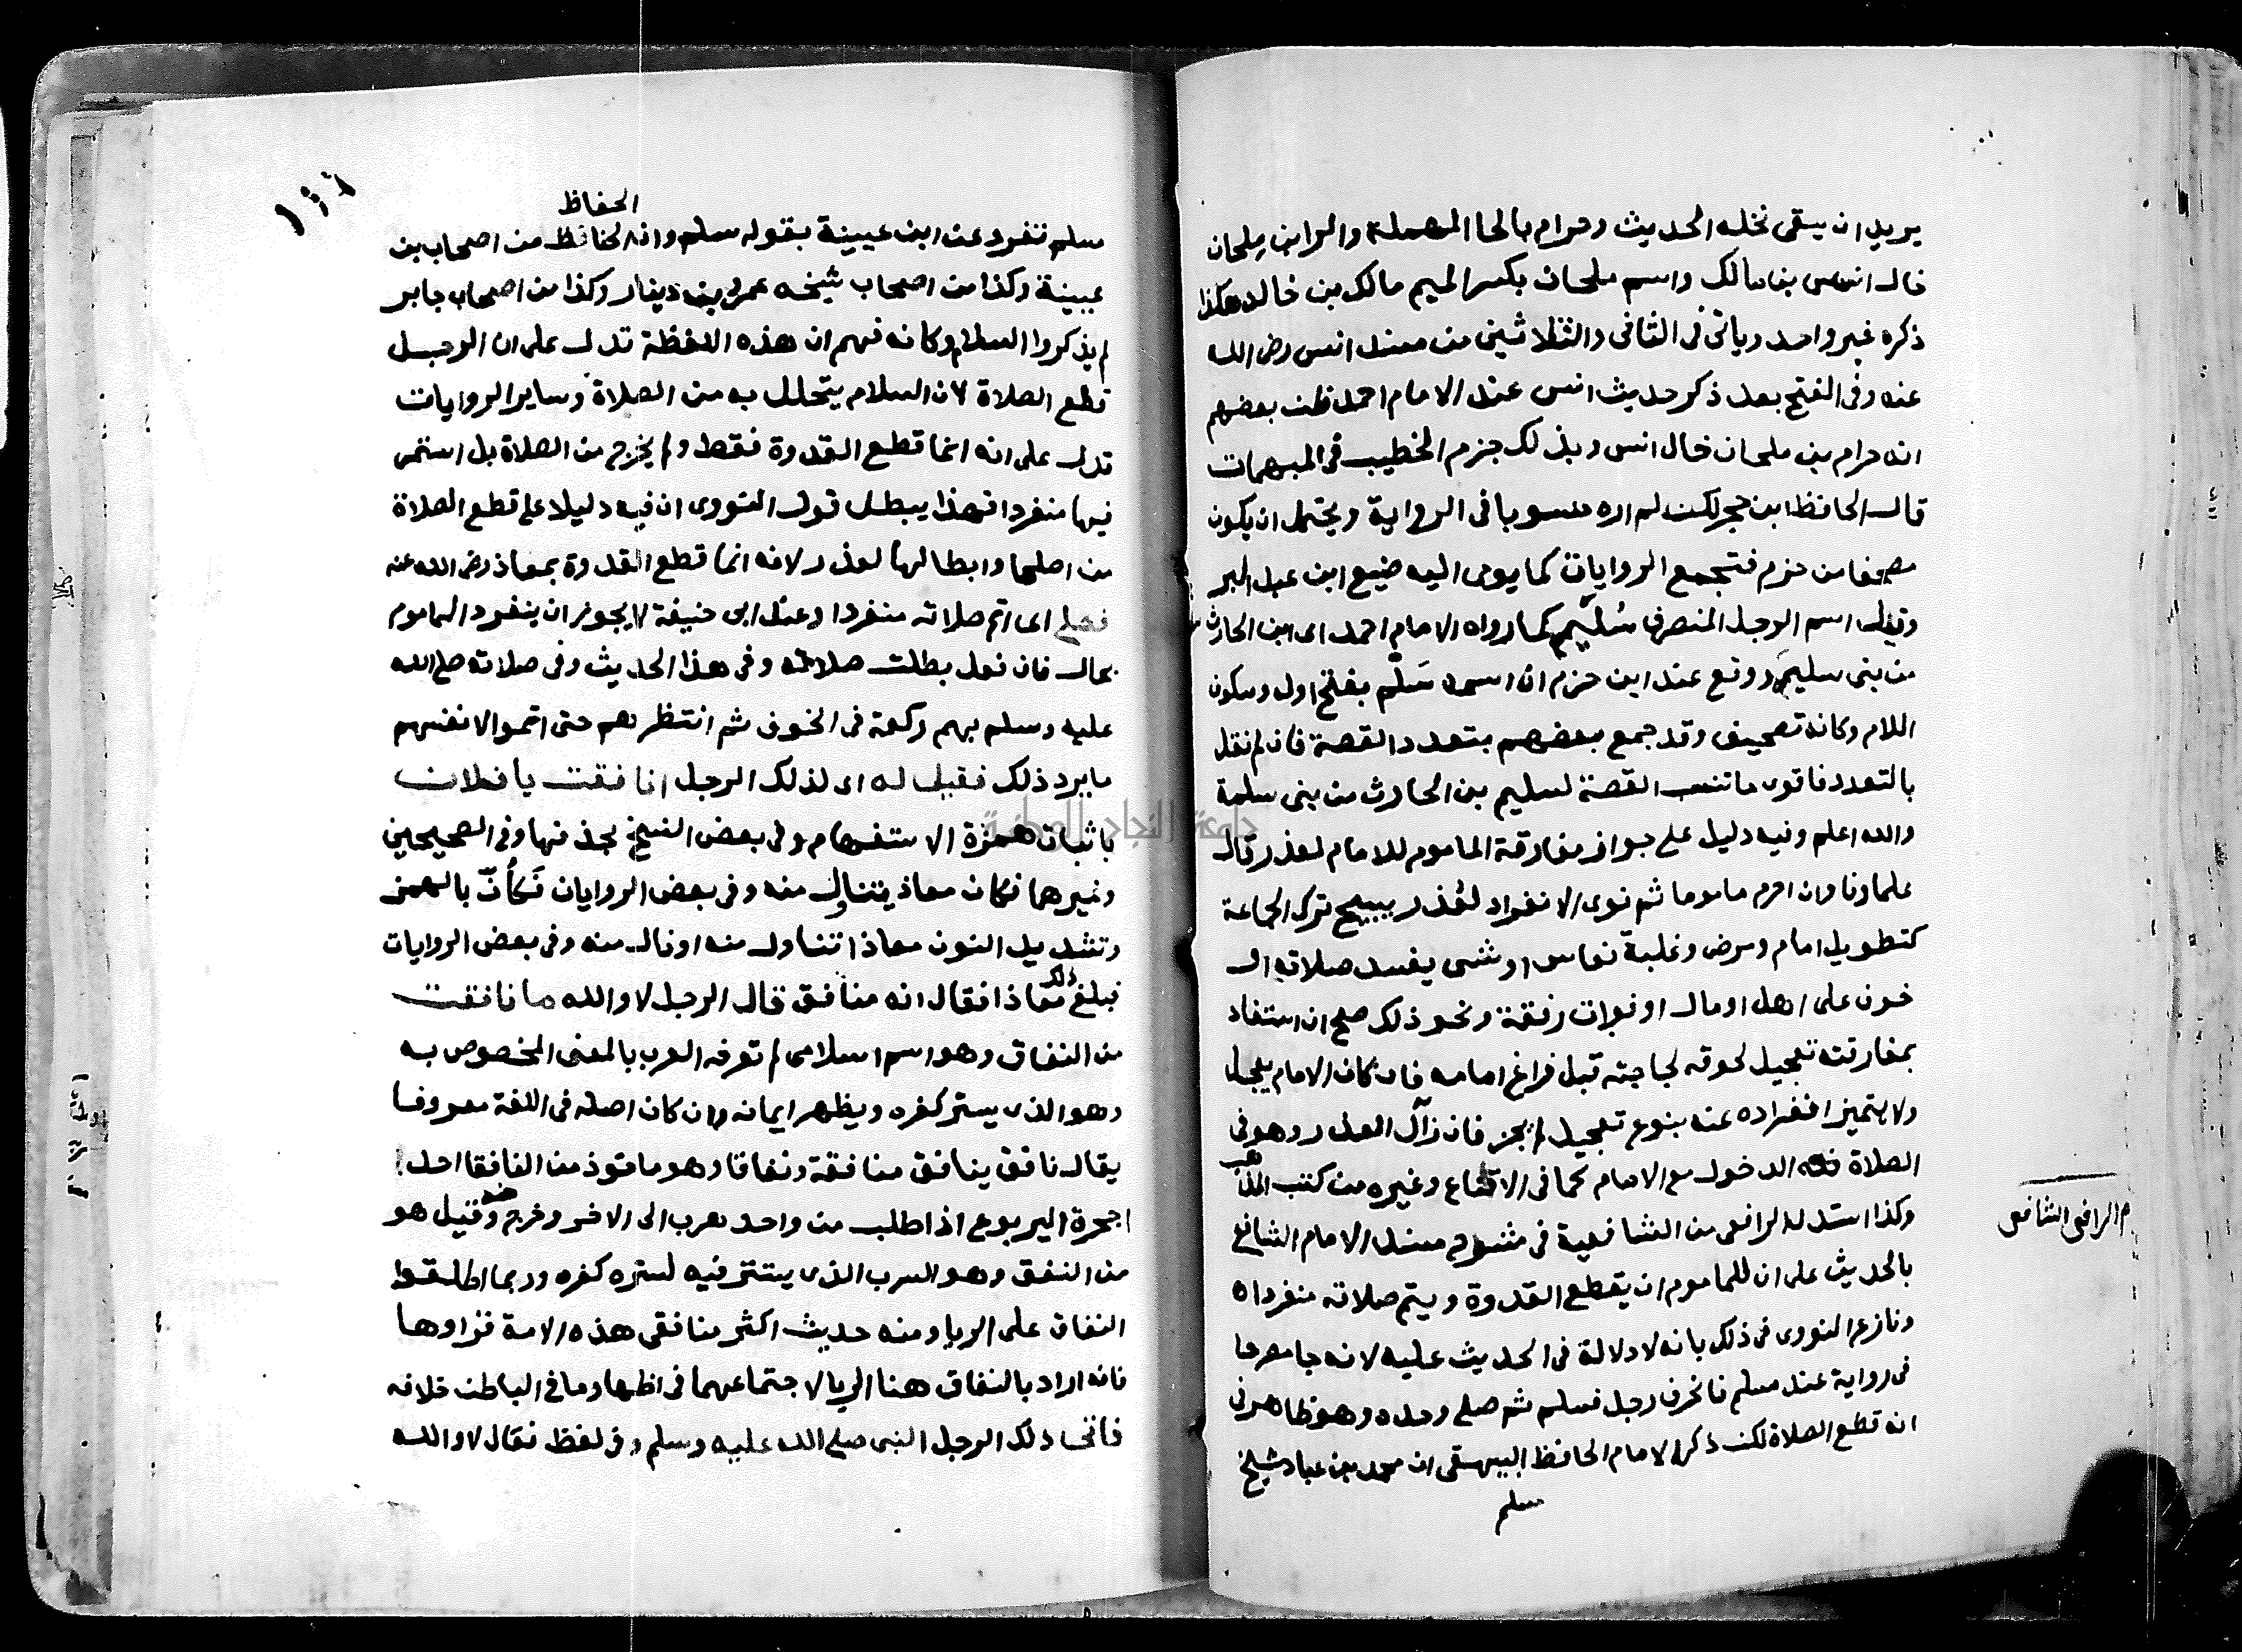 يريد ان يسقى نخله الحديث وحرام بالحا المهملة والرا ابن ملحان
خال انس بن مالك واسم ملحان بكسر الميم مالك بن خالد هكذا
ذكره غير واحد وياتى فى الثانى والثلاثين من مسند انس رضى الله
عنه وفى الفتح بعد ذكر حديث انس عند الامام احمد ظن بعضهم
انه حرام بن ملحان خال انس وبذلك جزم الخطيب فى المبهمات
قال الحافظ ابن حجر لكن لم اره منسوبا فى الرواية ويحتمل ان يكون
مصحفا من حزم فتجمع الروايات كما يومى اليه صنيع ابن عبد البر
وقيل اسم الرجل المنصرف سُليم كما رواه الامام احمد اى ابن الحارث
من بنى سليم ووقع عند ابن حزم ان اسمه سَلْم بفتح اوله وسكون
اللام وكانه تصحيف وقد جمع بعضهم بتعدد القصة فان لم نقل
بالتعدد فاقوى ما تنسب القصة لسليم بن الحارث من بنى سلمة
والله اعلم وفيه دليل على جواز مفارقة الماموم للامام لعذر وقال
علماونا وان احرم ماموما ثم نوى الانفراد لعذر يبيح ترك الجماعة
كتطويل امام ومرض وغلبة نعاس او شى يفسد صلاته او
خوف على اهل او مال او فوات رفقة ونحو ذلك صح ان استفاد
بمفارقته تعجيل لحوقه لحاجته قبل فراغ امامه فان كان الامام يعجل
ولا يتميز انفراده عنه بنوع تعجيل لم يجز فان زال العذر وهو فى
الصلاة فله الدخول مع الامام كما فى الاقناع وغيره من كتب المذهب
وكذا استدل الرافعى من الشافعية فى شرح مسند الامام الشافعى
م الرافعى الشافعى
بالحديث على ان للماموم ان يقطع القدوة ويتم صلاته منفردا ه
ونازع النووى فى ذلك بانه لا دلالة فى الحديث عليه لانه جا مصرحا
فى رواية عند مسلم فانحرف رجل فسلم ثم صلى وحده وهو ظاهر فى
انه قطع الصلاة لكن ذكر الامام الحافظ البيهقى ان محمد بن عباد شيخ
مسلم
الحفاظ
مسلم تفرد عن ابن عيينة بقوله سلم وان الحفاظ من اصحاب بن
عيينة وكذا من اصحاب شيخه عمرو بن دينار وكذا من اصحاب جابر
لم يذكروا السلام وكانه فهم ان هذه اللفظة تدل على ان الرجل
قطع الصلاة لان السلام يتحلل به من الصلاة وساير الروايات
تدل على انه انما قطع القدوة فقط ولم يخرج من الصلاة بل استمر
فيها منفردا فهذا يبطل قول النووى ان فيه دليلا على قطع الصلاة
من اصلها وابطالها لعذر لانه انما قطع القدوة بمعاذ رضى الله عنه
فصلى اى اتم صلاته منفردا وعند ابى حنيفة لا يجوز ان ينفرد الماموم
بحال فان فعل بطلت صلاته وفى هذا الحديث وفى صلاته صلى الله
عليه وسلم بهم ركعة فى الخوف ثم انتظرهم حتى اتموا لانفسهم
ما يرد ذلك فقيل له اى لذلك الرجل انافقت يا فلان
باثبات همزة الاستفهام وفى بعض النسخ بحذفها وفى الصحيحين
وغيرهما فكان معاذ يتناول منه وفى بعض الروايات فَكَأَنَّ بالهمز
وتشديد النون معاذا تناول منه او نال منه وفى بعض الروايات
فبلغ ذلك معاذا فقال انه منافق قال الرجل لا والله ما نافقت
من النفاق وهو اسم اسلامى لم تعرفه العرب بالمعنى المخصوص به
وهو الذى يستر كفره ويظهر ايمانه وان كان اصله فى اللغة معروفا
يقال نافق ينافق منافقة ونفاقا وهو ماخوذ من النافقا احد
اجحرة اليربوع اذا طلب من واحد هرب الى الاخر وخرج منه وقيل هو
من النفق وهو السرب الذى يستتر فيه لستره كفره وربما اطلقوا
النفاق على الريا ومنه حديث اكثر منافقى هذه الامة قراوها
فانه اراد بالنفاق هنا الريا لاجتماعهما فى اظهار ما فى الباطن خلافه
فاتى ذلك الرجل النبى صلى الله عليه وسلم وفى لفظ فقال لا والله